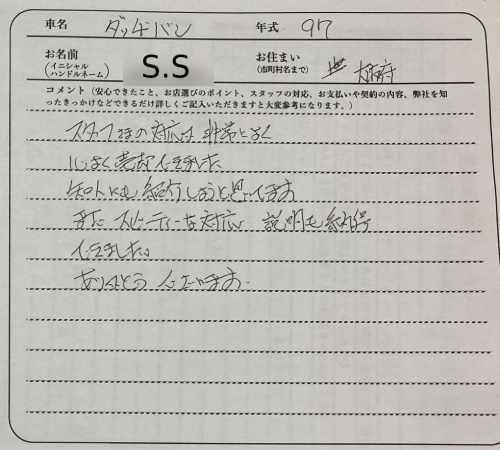 車名 ダッヂバン 年式 97
お名前 (イニシャル ハンドルネーム) S.S お住まい (市町村名まで) 大阪府
コメント（安心できたこと、お店選びのポイント、スタッフの対応、お支払いや契約の内容、弊社を知
ったきっかけなどできるだけ詳しくご記入いただきますと大変参考になります。）
スタッフさまの対応は非常によく
心よく売却できました
知人にも紹介しようと思ってます
また スピーディーな対応 説明も納得
できました。
ありがとうございます。